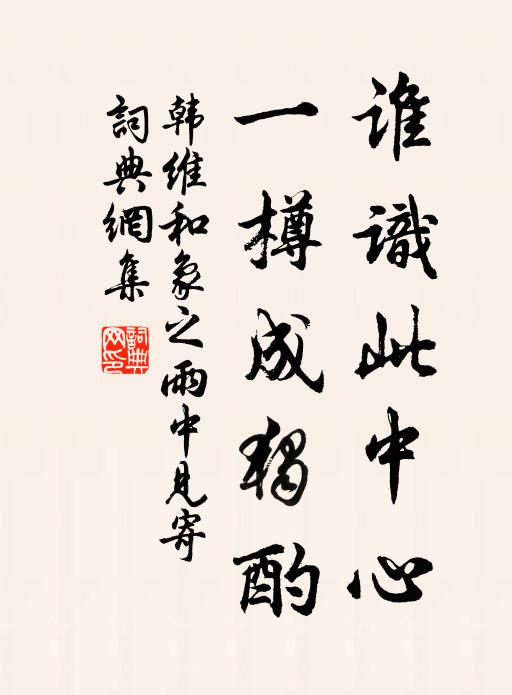 谁識此中心
一樽成獨酌
韩维和象之雨中見寄
詞典網集
詞典網印